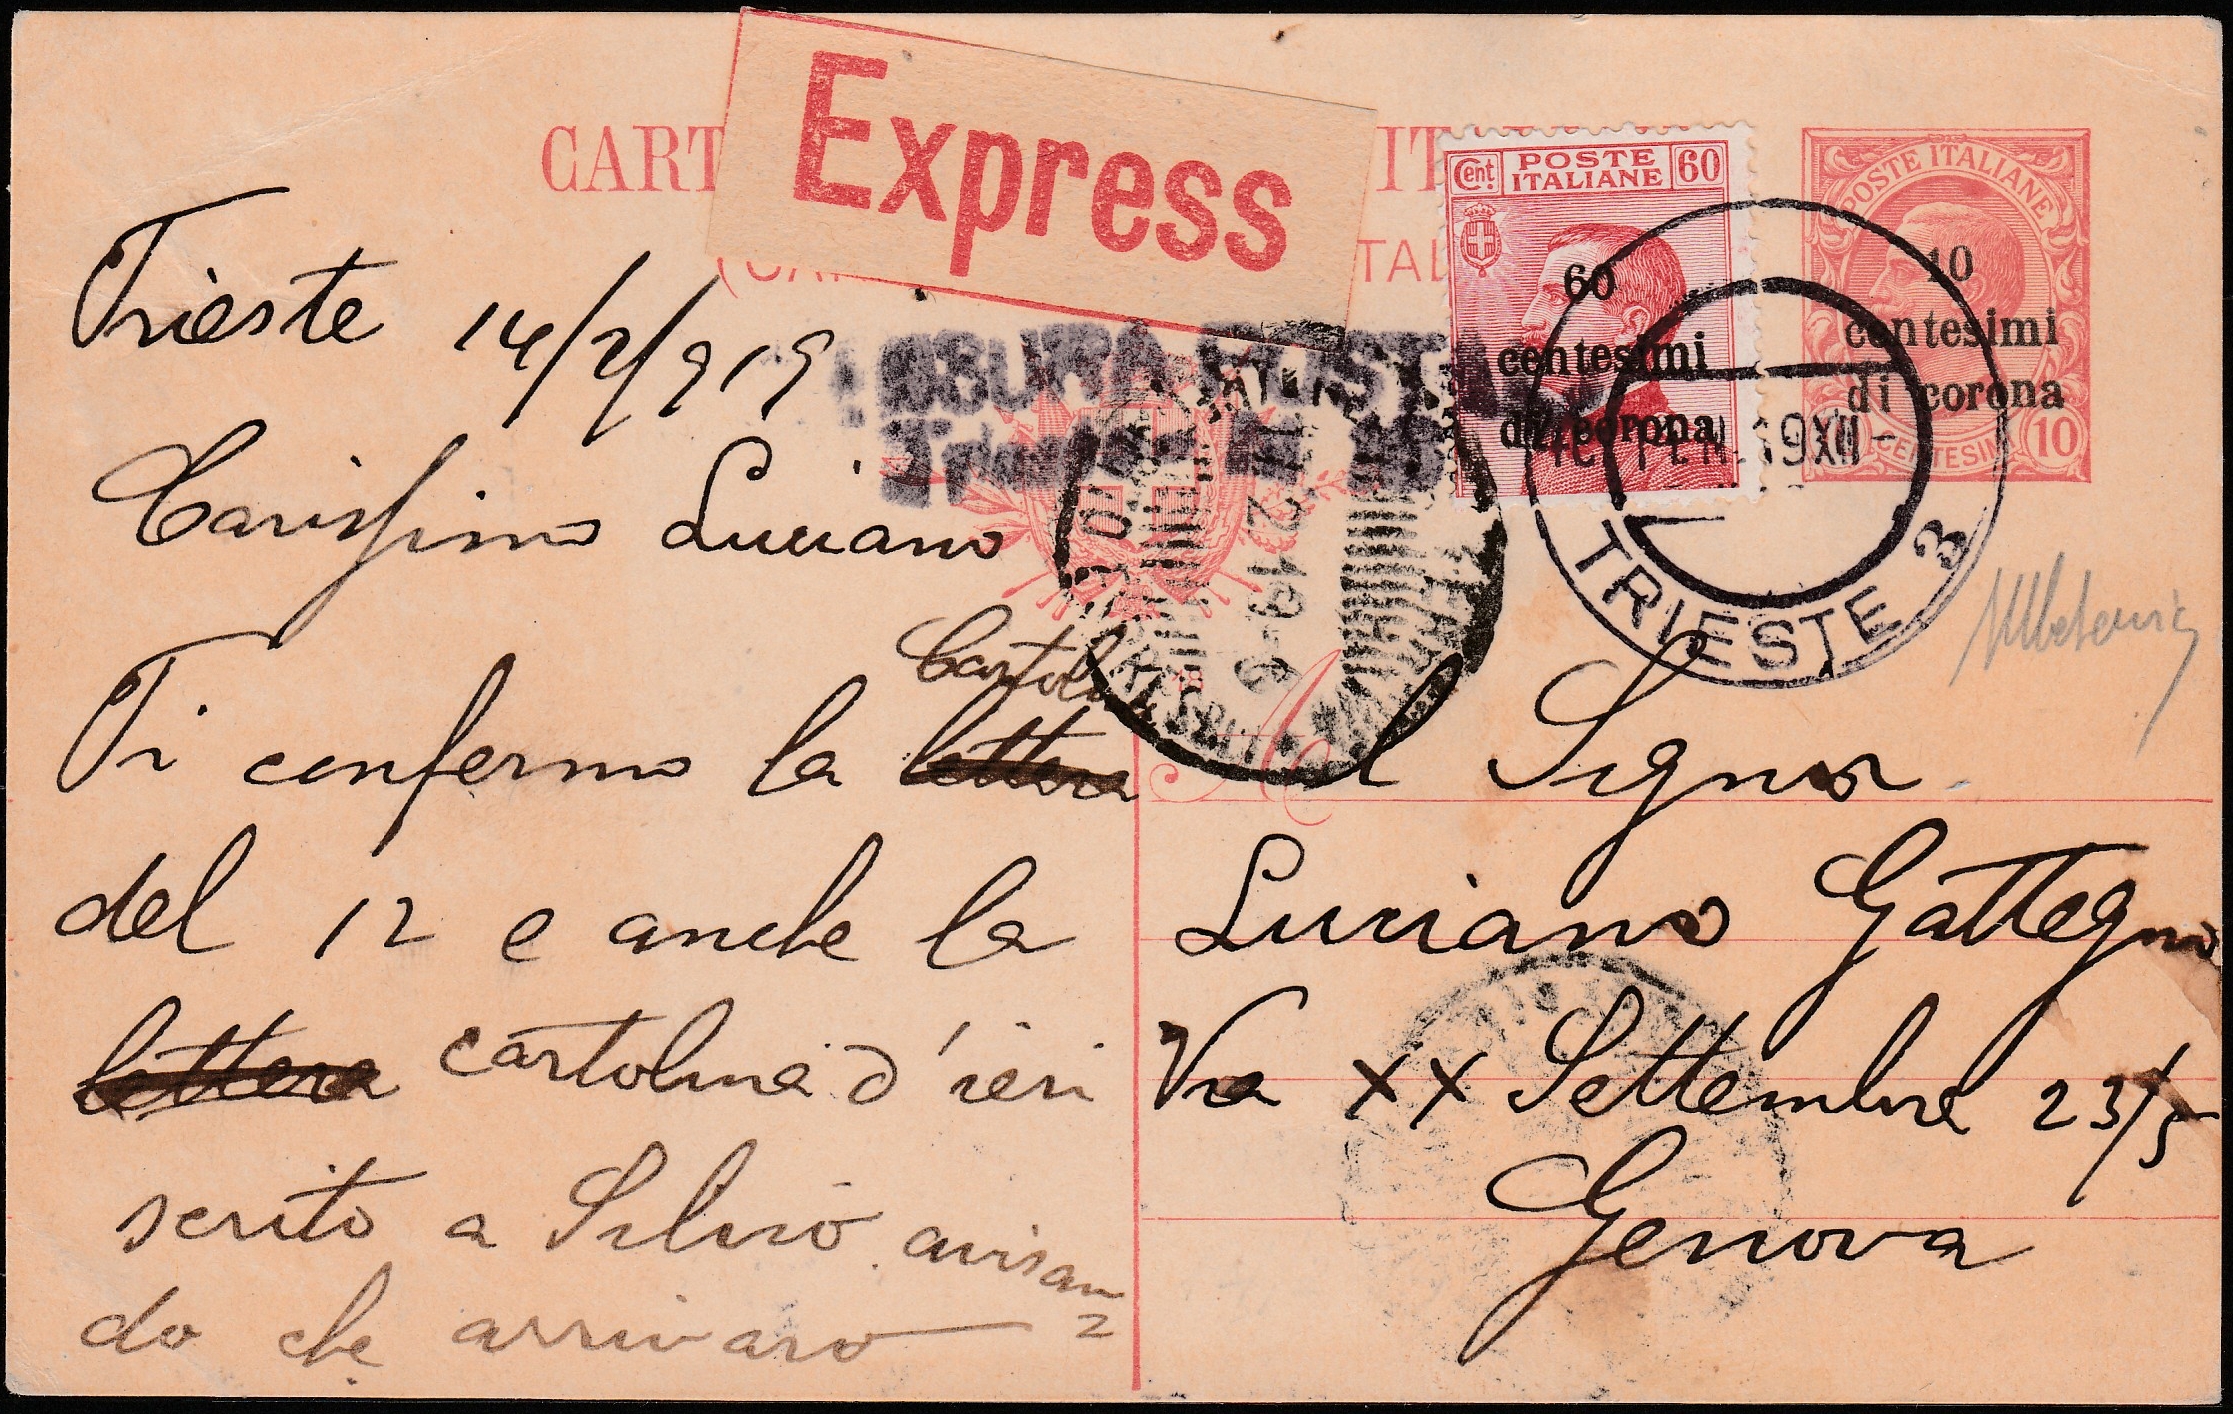 CART
Express
IT
TAL
Cent. POSTE ITALIANE 60
60
centesimi
di corona
POSTE ITALIANE
10
centesimi
di corona
CENTESIMI 10
CENSURA POSTALE
Trieste
TRIESTE 3
19 XII -
Trieste 14/2/919
Carissimo Luciano
Cartolina
Ti confermo la lettera
del 12 e anche la
lettera cartolina d'ieri
scritto a Silvio avisan
do che arrivaro
A l Signor
Luciano Gattegno
Via XX Settembre 23/5
Genova